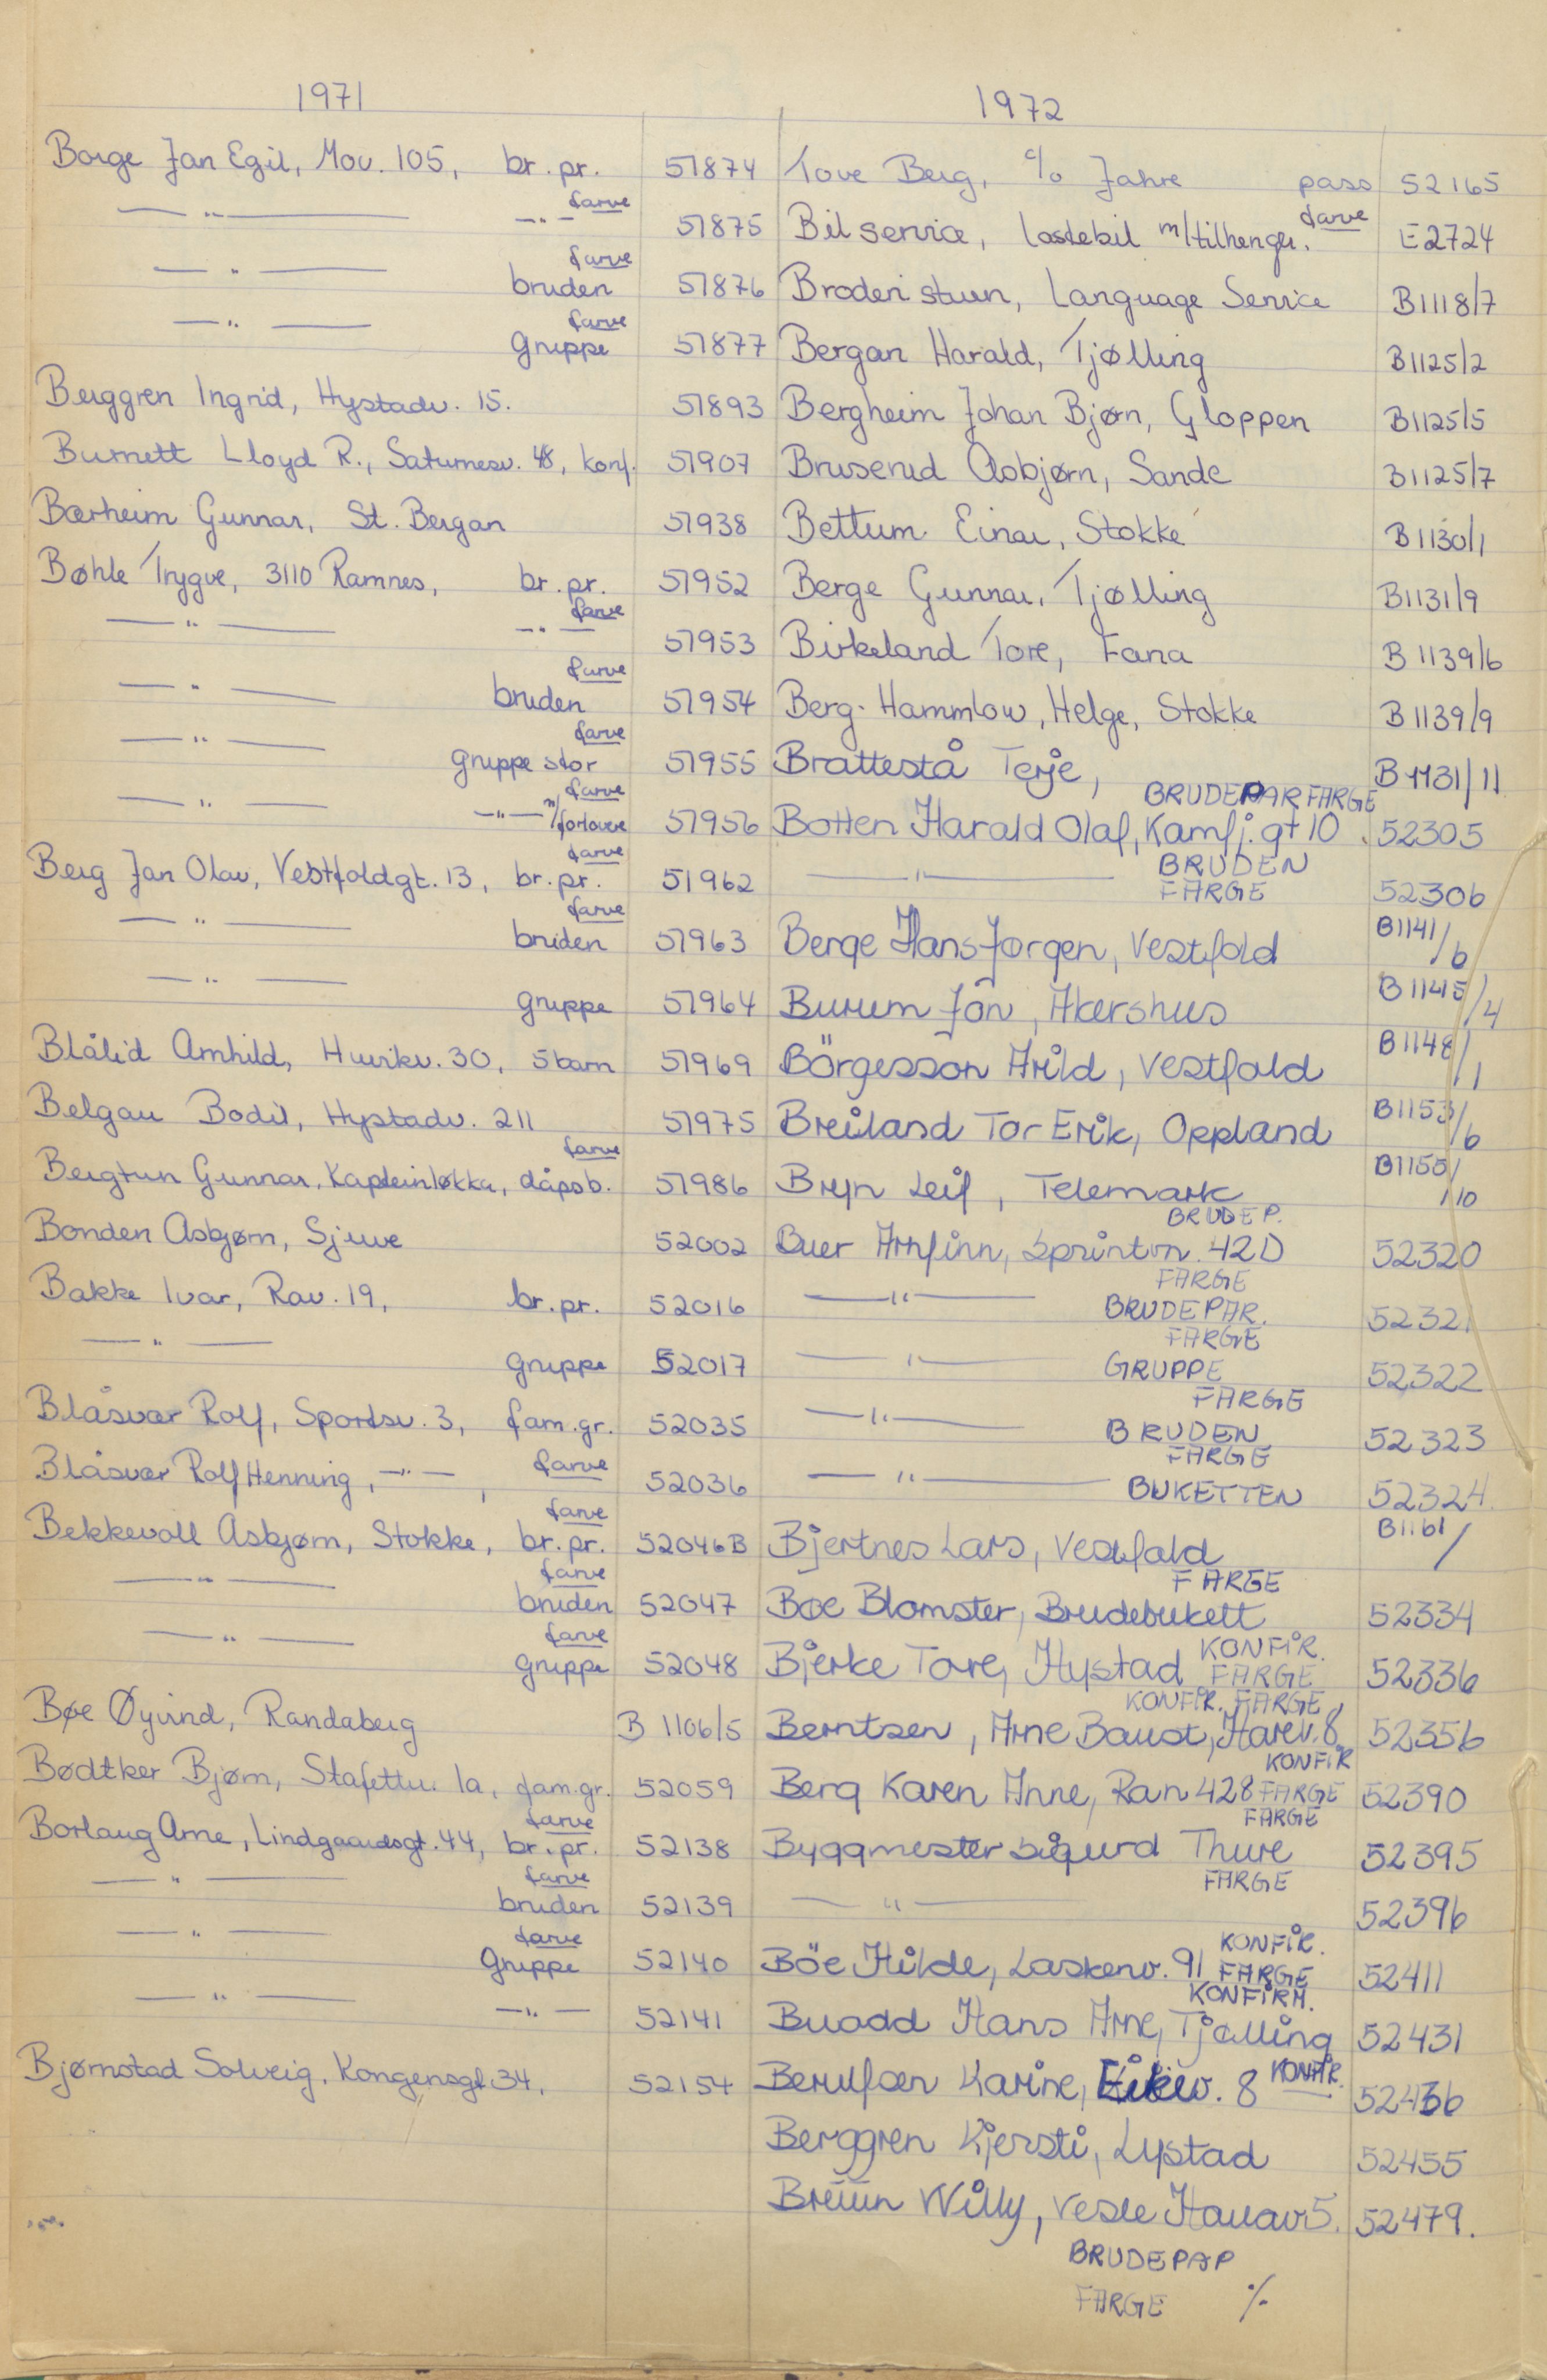 1971
Borge Jan Egil, Mov. 105, br. pr. 51874
— " — — " — farve 51875
— " — bruden farve 51876
— " — gruppe farve 51877
Berggren Ingrid, Hystadv. 15. 51893
Burnett Lloyd R., Saturnesv. 48, konf. 51907
Bærheim Gunnar, St. Bergan 51938
Bøhle Trygve, 3110 Ramnes, br. pr. 51952
— " — — " — farve 51953
— " — bruden farve 51954
— " — gruppe stor farve 51955
— " — — " — m/forlovere farve 51956
Berg Jan Olav, Vestfoldgt. 13, br. pr. farve 51962
— " — bruden farve 51963
— " — gruppe 51964
Blålid Arnhild, 30, 5 barn 51969
Belgau Bodil, Hystadv. 211 51975
Bergtun Gunnar, Kapteinløkka, dåpsb. farve 51986
Bonden Asbjørn, Sjuve 52002
Bakke Ivar, Rav. 19, br. pr. 52016
— " — gruppe 52017
Blåsvær Rolf, Sportsv. 3, fam. gr. 52035
Blåsvær Rolf Henning, — " —, farve 52036
Bekkevoll Asbjørn, Stokke, br. pr. farve 52046B
— " — bruden farve 52047
— " — gruppe farve 52048
Bøe Øyvind, Randaberg B 1106/5
Bødtker Bjørn, Stafettv. 1a, fam. gr. 52059
Borlaug Arne, Lindgaardsgt. 44, br. pr. farve 52138
— " — bruden farve 52139
— " — gruppe farve 52140
— " — — " — 52141
Bjørnstad Solveig, Kongensgt. 34, 52154
1972
Tove Berg, c/o Jahre pass 52165
Bilservice, lastebil m/tilhenger. farve E2724
Broderistuen, Language Service B1118/7
Bergan Harald, Tjølling B1125/2
Bergheim Johan Bjørn, Gloppen B1125/5
Bruserud Asbjørn, Sande B1125/7
Bettum Einar, Stokke B1130/1
Berge Gunnar, Tjølling B1131/9
Birkeland Tore, Fana B 1139/6
Berg-Hammlow, Helge, Stokke B 1139/9
Brattestå Terje, B 1131/11
Botten Harald Olaf, Kamfj. gt 10. BRUDEPAR FARGE 52305
— " — BRUDEN FARGE 52306
Berge Hans Jørgen, Vestfold B1141/6
Burum Jon, Akershus B 1145/4
Börgesson Arild, Vestfold B1148/1
Breiland Tor Erik, Oppland B1153/6
Bryn Leif, Telemark B1155/10
Buer Arnfinn, Sprintvn. 42D BRUDEP. 52320
— " — FARGE BRUDEPAR. 52321
— " — FARGE GRUPPE 52322
— " — FARGE BRUDEN 52323
— " — FARGE BUKETTEN 52324
Bjertnes Lars, Vestfold B1161/
Boe Blomster, Brudebukett FARGE 52334
Bjerke Tore, Hystad KONFIR. FARGE 52336
Berntsen, Arne Baust, Harev. 8 KONFIR. FARGE 52356
Berg Karen Anne, Ran 428 KONFIR FARGE 52390
Byggmester Sigurd Thure FARGE 52395
— " — FARGE 52396
Böe Hilde, Laskenv. 91 KONFIR. FARGE 52411
Buodd Hans Arne, Tjølling KONFIRM. 52431
Berulfsen Karine, Eikev. 8 KONFIR. 52436
Berggren Kjersti, Lystad 52455
Bruun Willy, Vesle Hauav 5. 52479.
BRUDEPAR
FARGE ./.